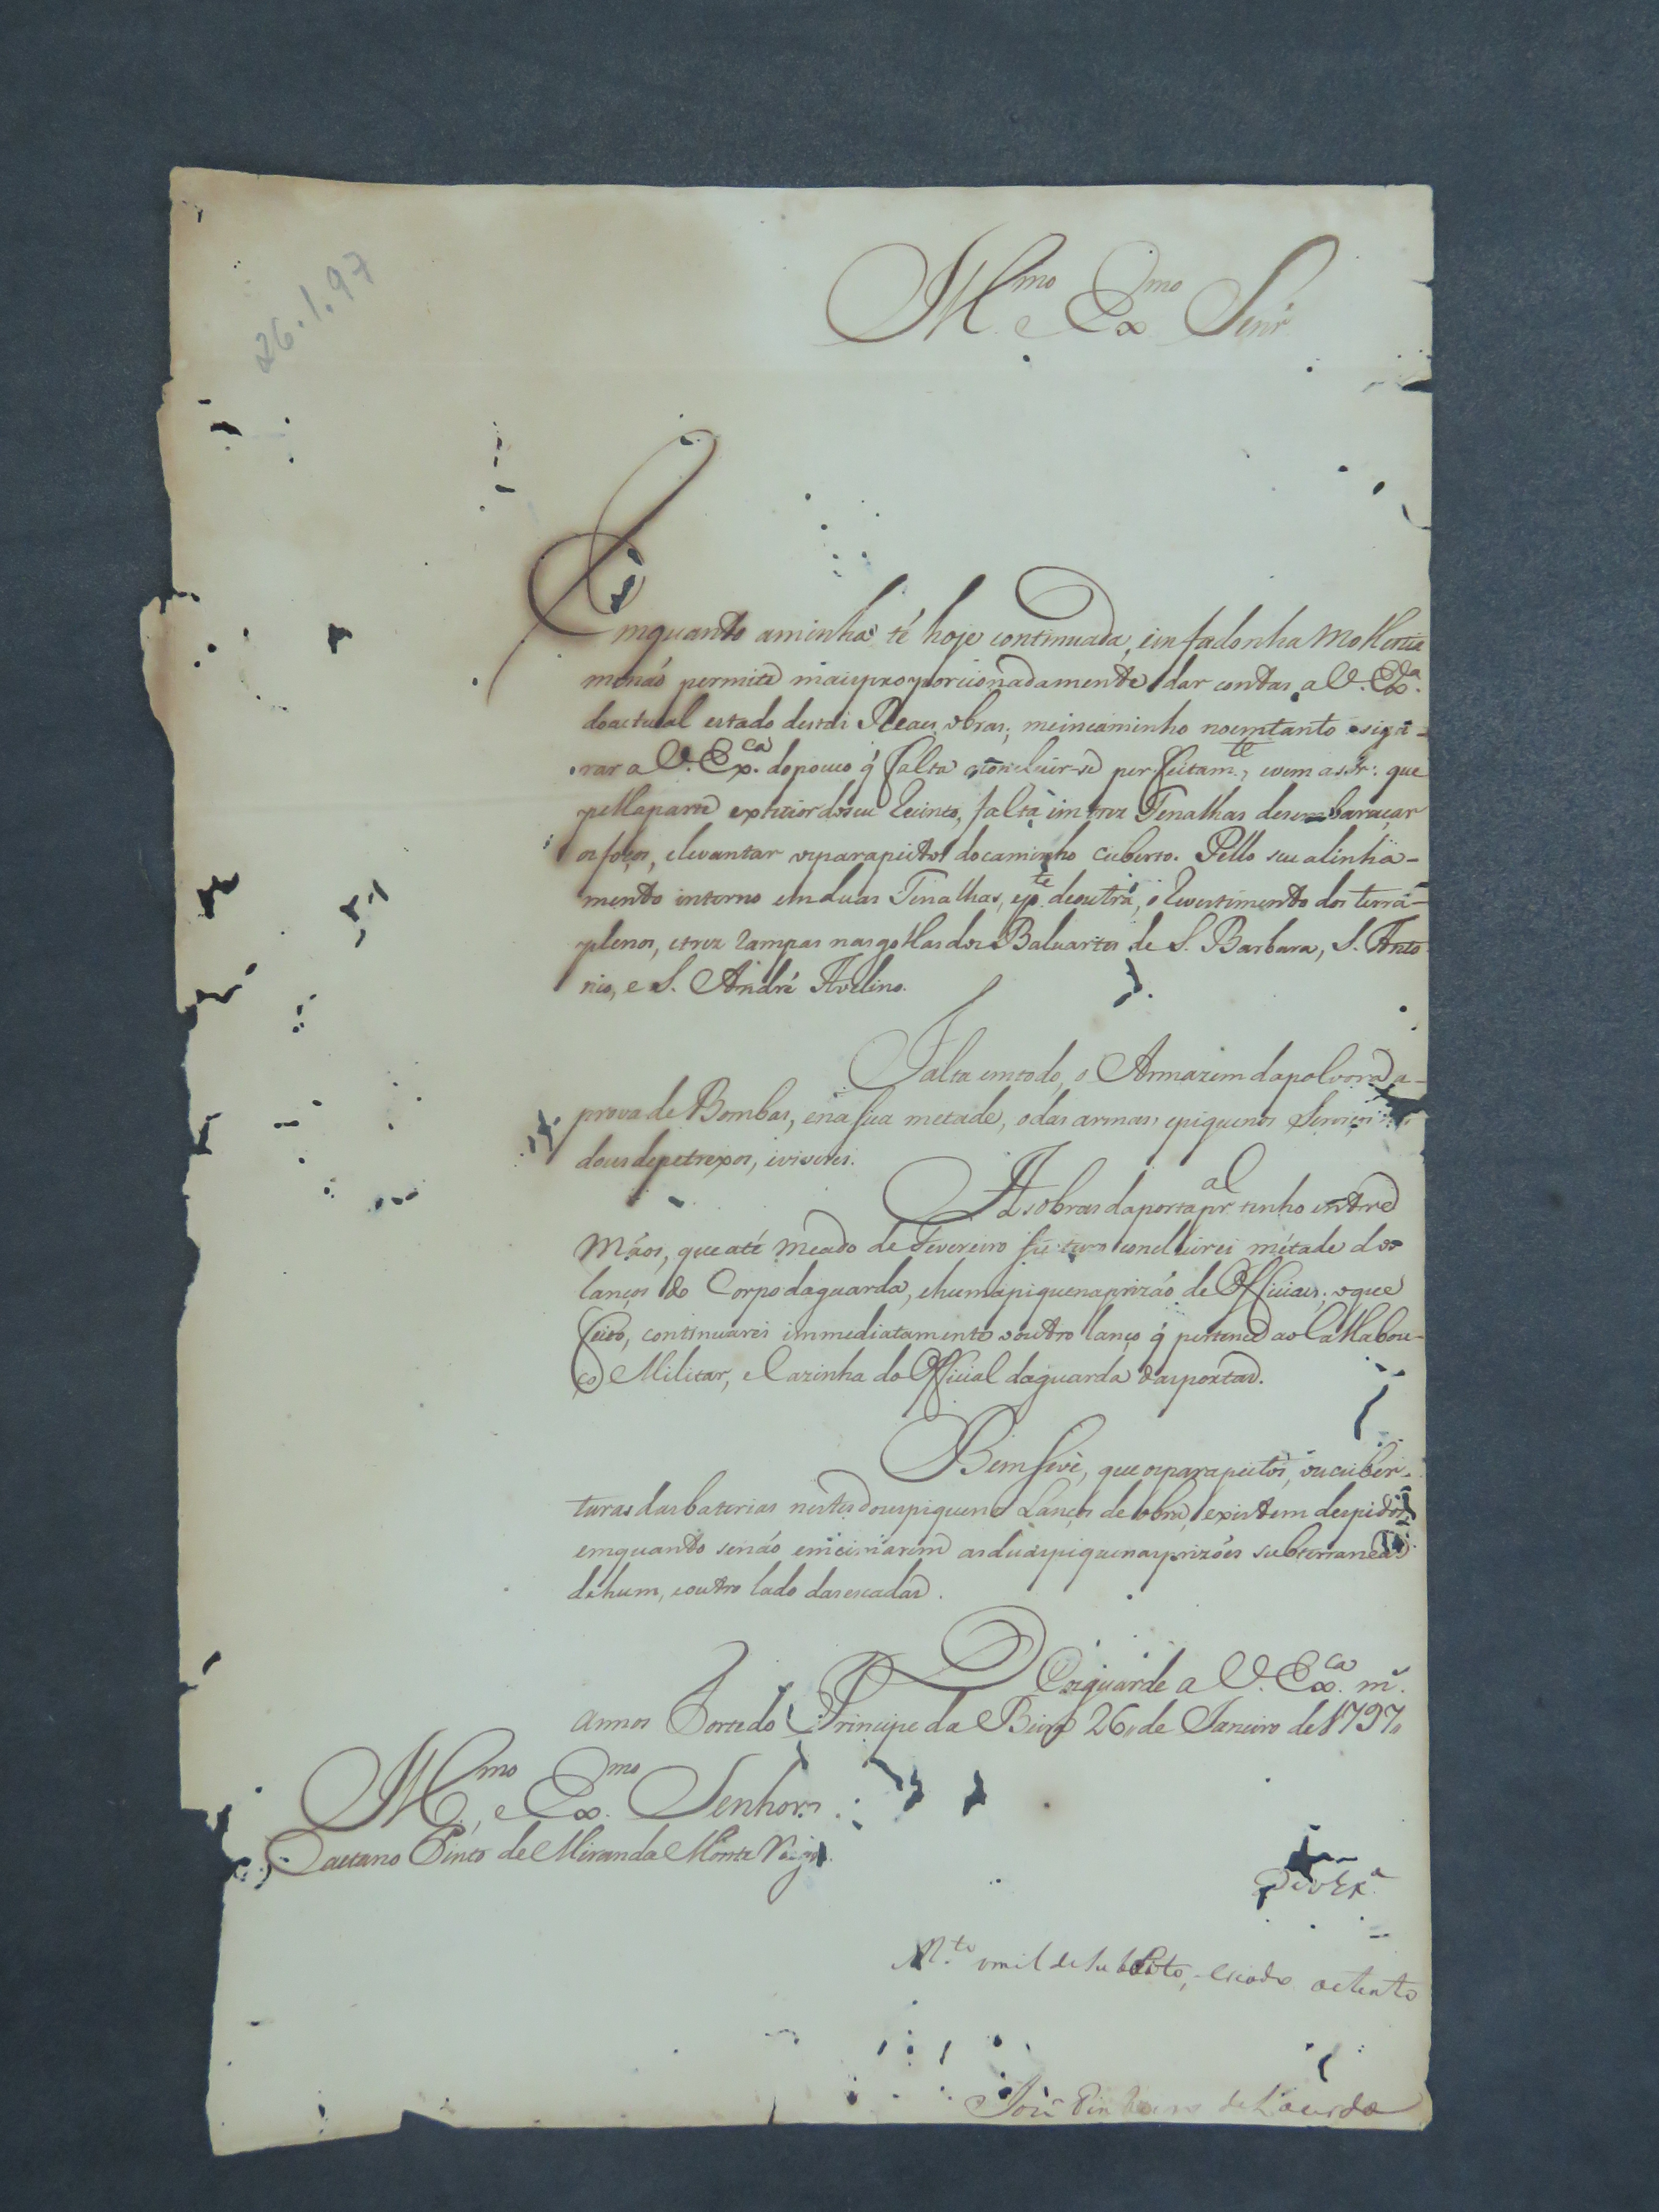 26.1.97
Illmo e Exmo Senr
Emquanto aminha té hoje continuada, einfadonha Mollestia
menáo permite maisproporcionadamente dar contas a V. Exa.
doactual estado destas Reaes obras; meincaminho noemtanto asigu-
rar a V. Exca. dopouco q̃ falta aconcluir-se perfeitamte, evem aser: que
pellaparte exterior doseu Recinto, falta em trez Tenalhas desembaraçar
osfoços, elevantar osparapeitos docaminho cuberto. Pello seu alinha-
mento interno emduas Tenalhas, epte deoutra, o Revestimento dos terra-
plenos, etrez Rampas nasgollas dos Baluartes de S. Barbara, S. Anto
nio, e S. André Avelino.
Falta emtodo, o Armazem dapolvora a-
prova de Bombas, ena sua metade, odas armas, epiquenos
dousdepetrexos, eviveres.
As obras daportapral tenho entre
Mãos, que até Meado de Fevereiro futuro concluirei métade dos
lanços do Corpo daguarda, ehumapiquenaprizáo de Officiaes; oque
feito, continuarei immediatamente ooutro lanço q̃ pertence ao Callabou-
ço Militar, eCazinha do Official daguarda dasportas.
Bem sevè, que osparapeitos, oucuber-
turas dasbaterias nestes douspiquenos Lanços de obra, existem despidos,
emquanto senáo emcimarem asduaspiquenasprizões subterraneas
dehum, eoutro lado dasescadas.
Dsguarde a V. Exca. ms.
annos Forte do Principe da Beira 26, de Janeiro de 1797,,
Illmo, e Exmo. Senhor
Caetano Pinto de Miranda Monte Negro.
De V Exa.
Mto umilde Subdito, eCriado atento
José Pinheiro de Lacerda